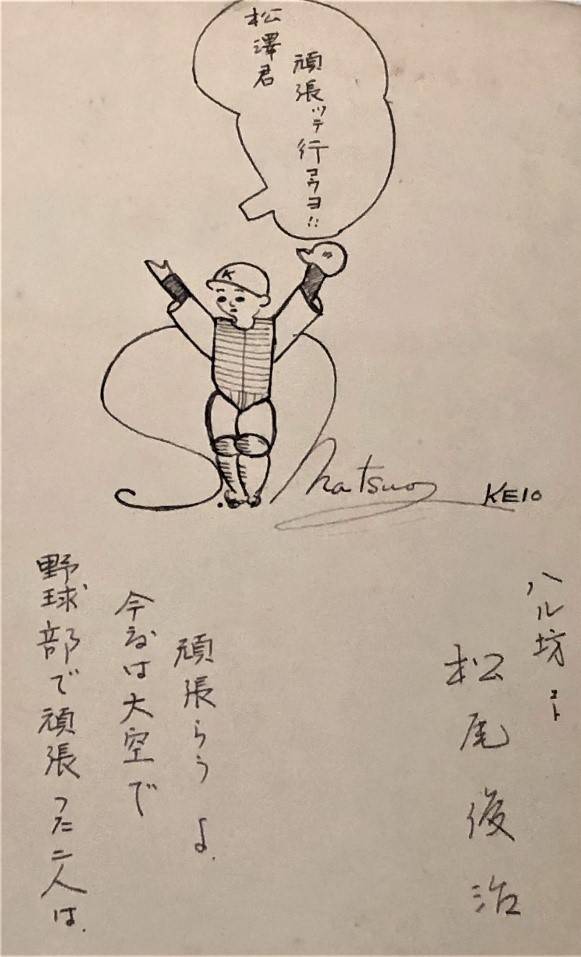 松澤君
頑張ッテ行コウヨ!!
K
S. Matsuo KEIO
野球部で頑張った二人は、
今度は大空で
頑張らうよ。
ハル坊コト
松尾俊治